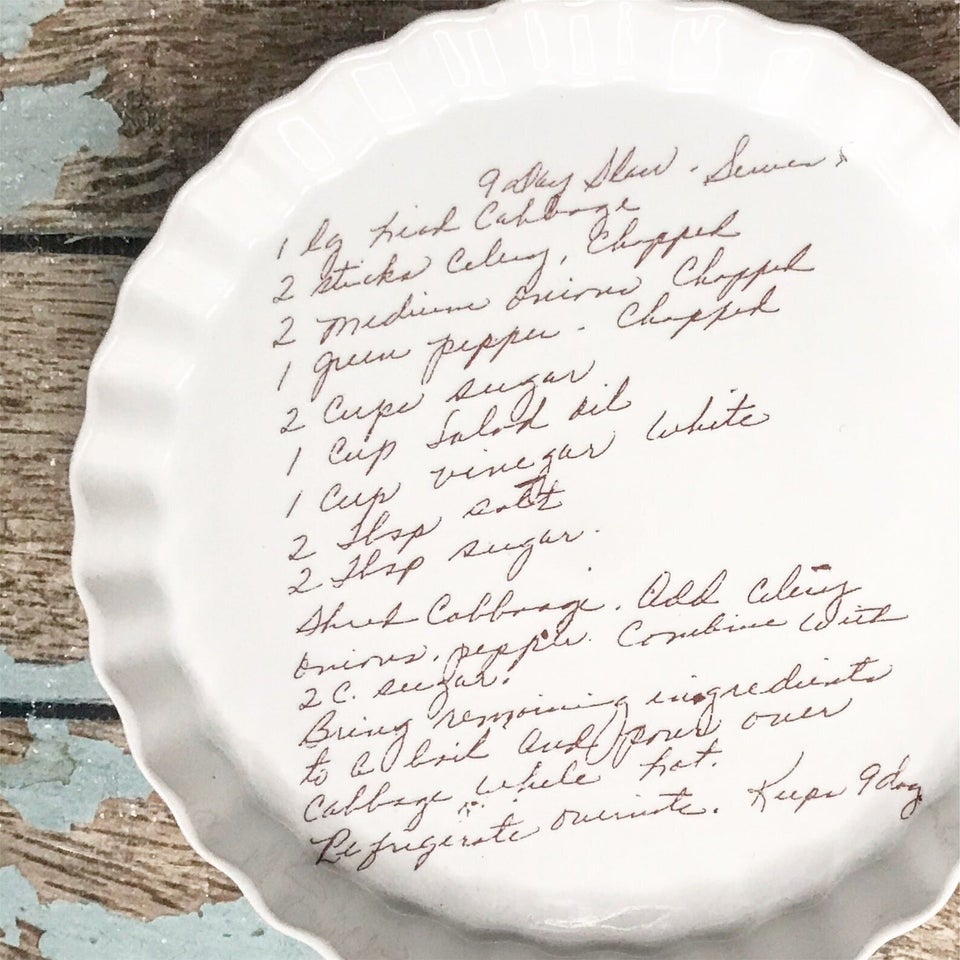 9 Day Slaw - Serves
1 lg Head Cabbage
2 Sticks Celery, Chopped
2 Medium Onions Chopped
1 green pepper - Chopped
2 Cups sugar
1 Cup Salad oil
1 Cup vinegar White
2 Tbsp salt
2 Tbsp sugar.
Shred Cabbage. Add Celery
Onions, pepper. Combine With
2 C. sugar.
Bring remaining ingredients
to a boil and pour over
Cabbage while hot.
Refrigerate overnite. Keeps 9 day